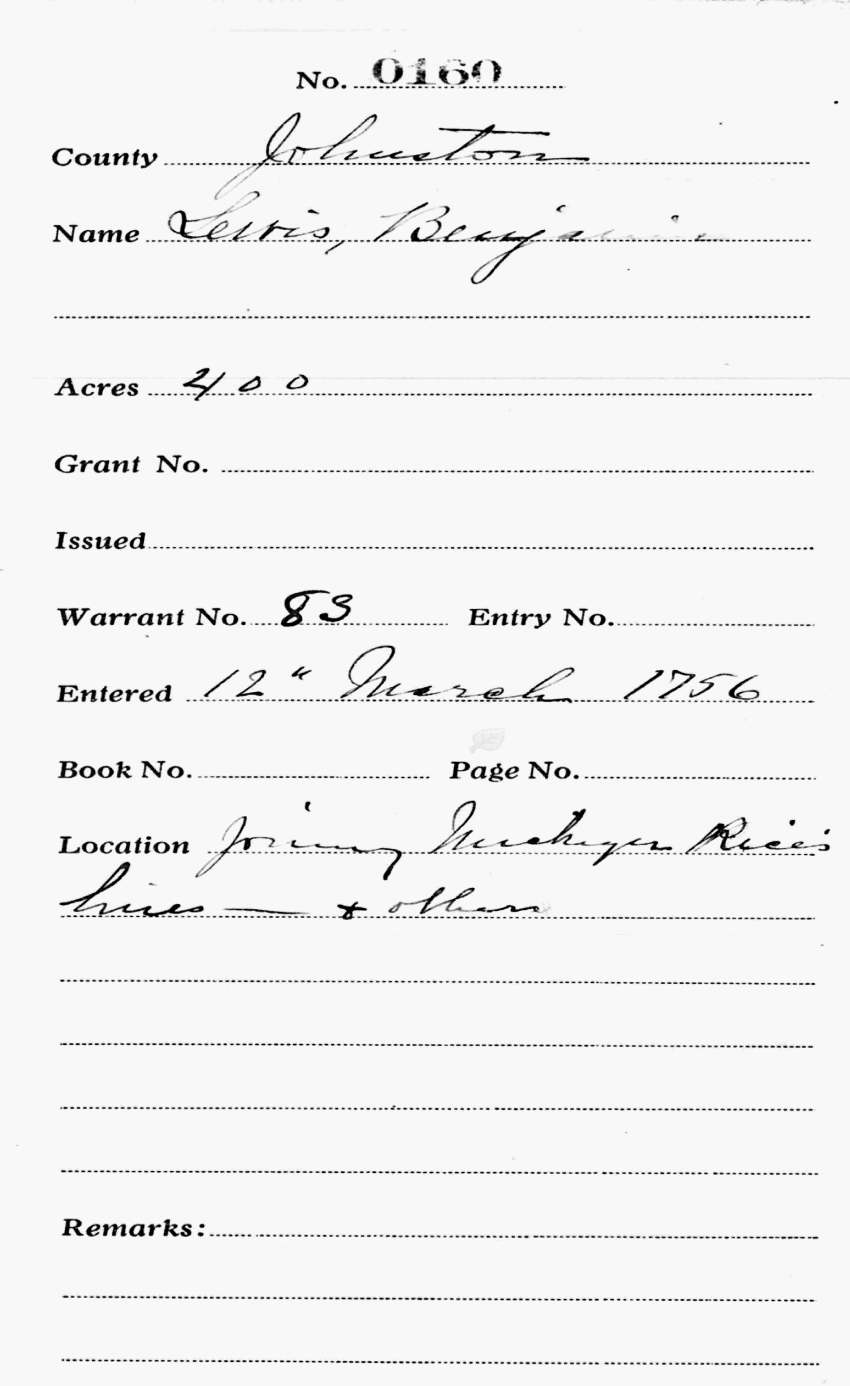 No. 0160
County Johnston
Name Lewis, Benjamin
Acres 400
Grant No.
Issued
Warrant No. 83 Entry No.
Entered 12" March 1756
Book No. Page No.
Location Joining Rice's
lines — & others
Remarks: